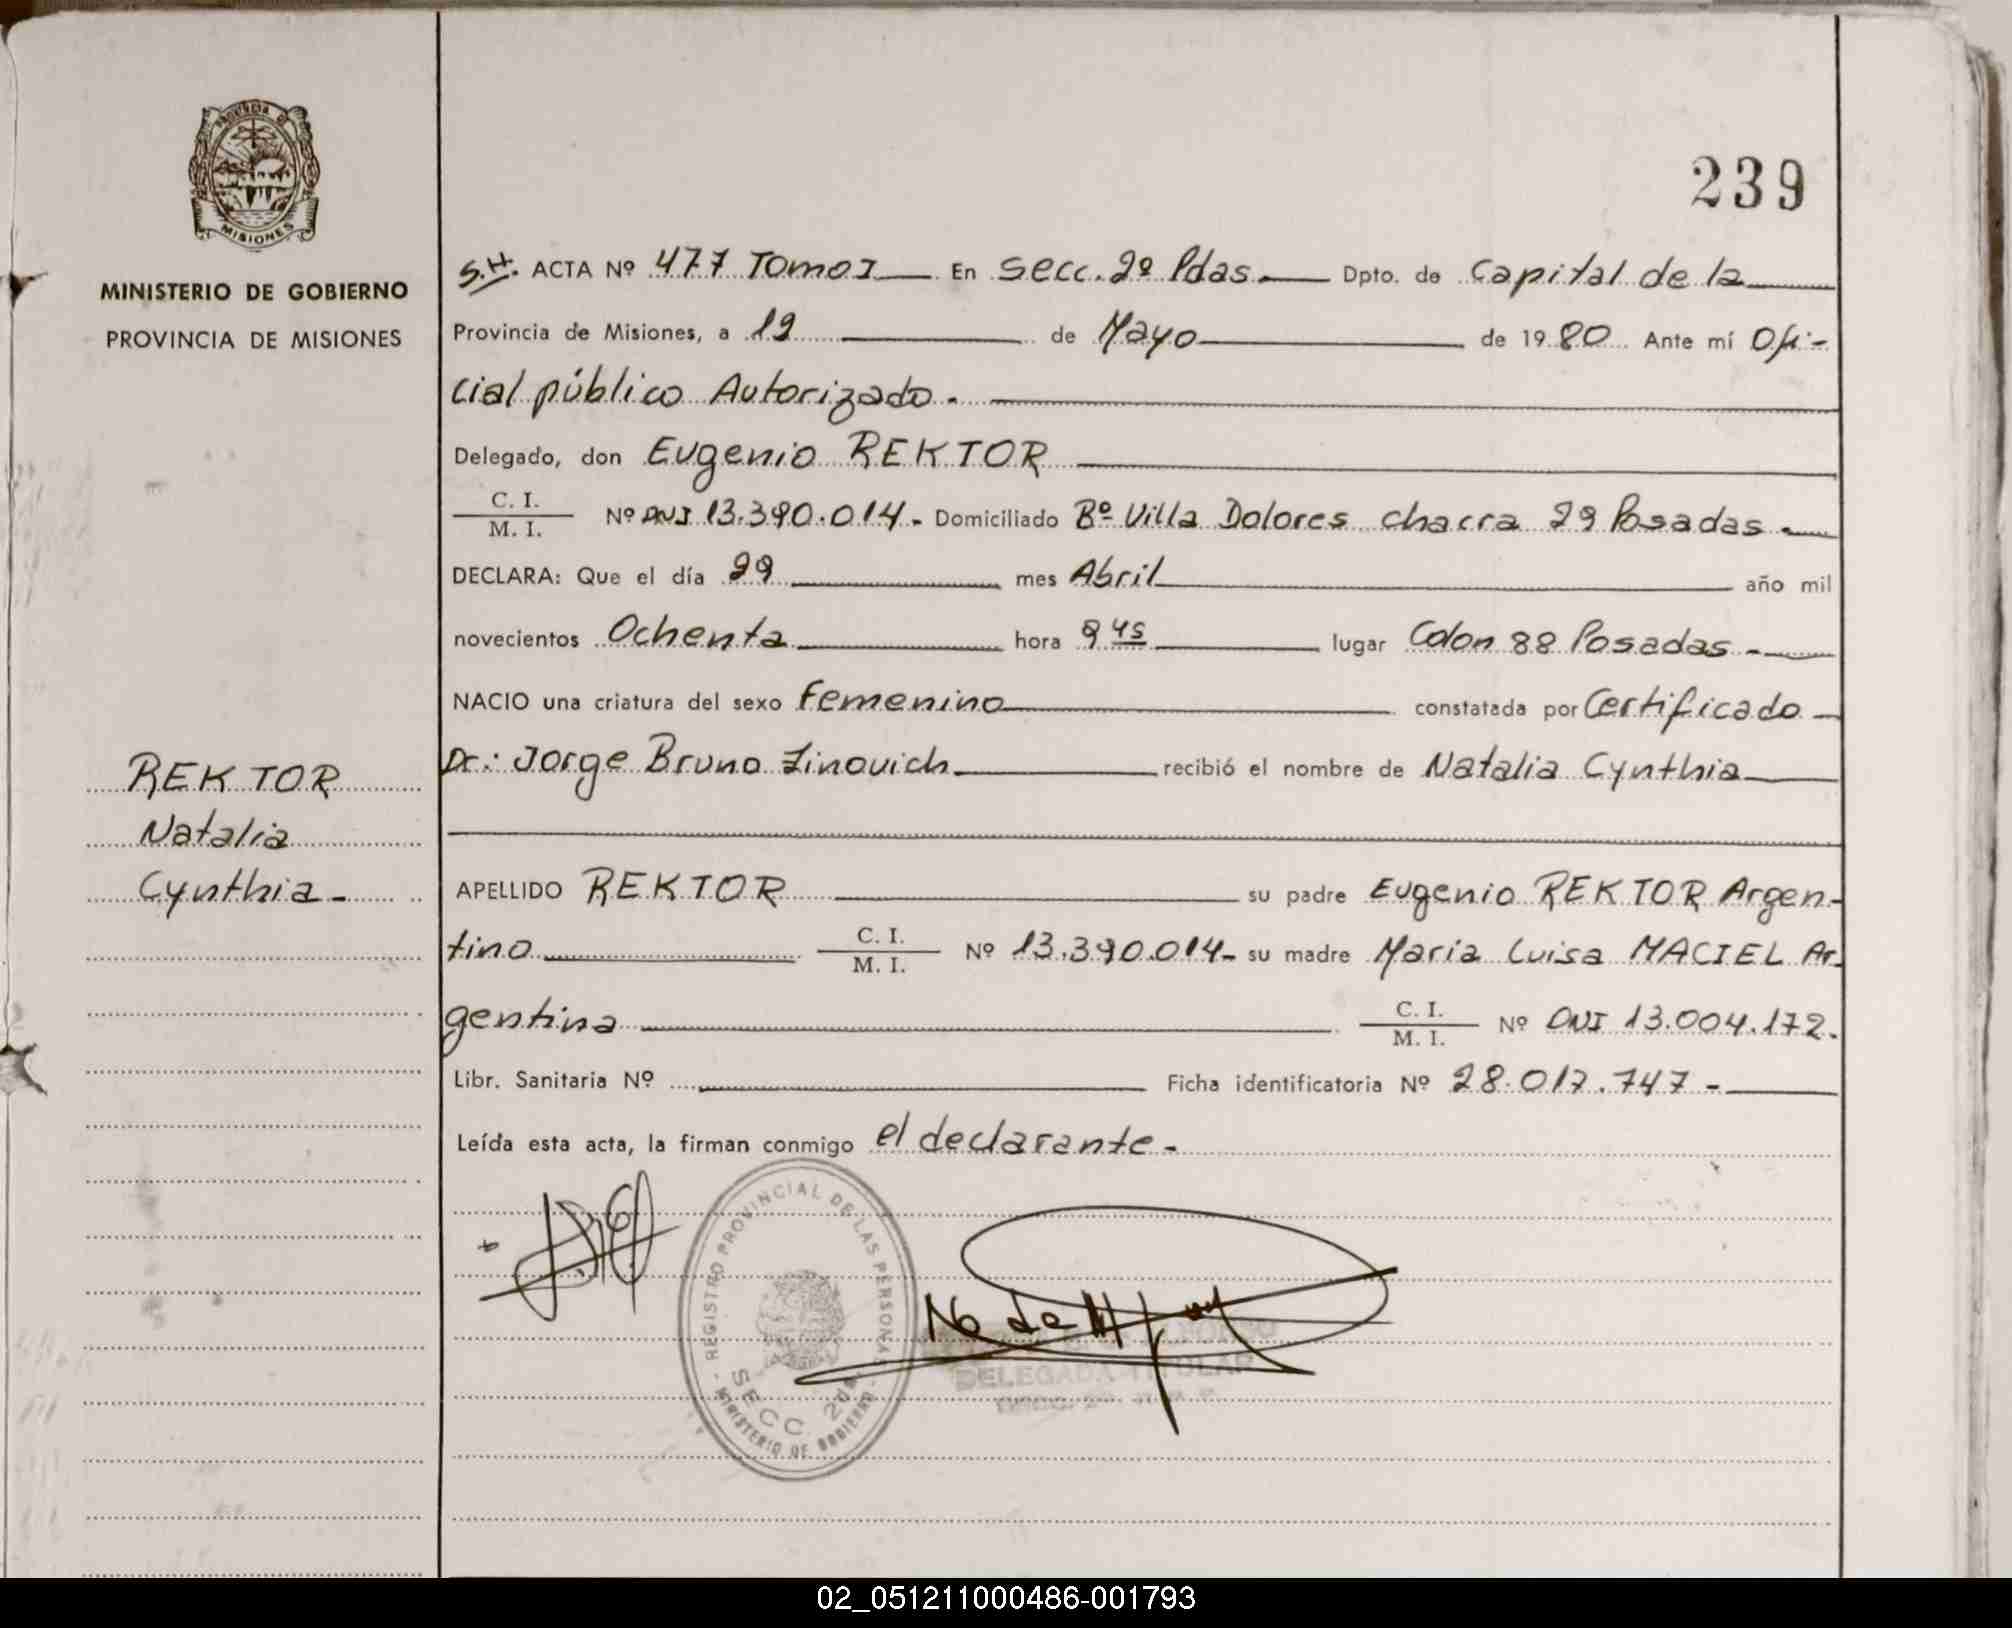 PROVINCIA DE
MISIONES
MINISTERIO DE GOBIERNO
PROVINCIA DE MISIONES
REKTOR
Natalia
Cynthia -
239
S.H. ACTA Nº 477 Tomo I En Secc. 2º Pdas. Dpto. de Capital de la
Provincia de Misiones, a 19 de Mayo de 1980 Ante mí Ofi-
cial público Autorizado.
Delegado, don Eugenio REKTOR
C. I.
M. I.
Nº DNI 13.390.014. Domiciliado Bº Villa Dolores chacra 29 Posadas.
DECLARA: Que el día 29 mes Abril año mil
novecientos Ochenta hora 9 45 lugar Colon 88 Posadas.
NACIO una criatura del sexo Femenino constatada por Certificado
Dr.: Jorge Bruno Zinovich recibió el nombre de Natalia Cynthia
APELLIDO REKTOR su padre Eugenio REKTOR Argen-
tino C. I.
M. I.
Nº 13.390.014- su madre Maria Luisa MACIEL Ar-
gentina C. I.
M. I.
Nº DNI 13.004.172.
Libr. Sanitaria Nº Ficha identificatoria Nº 28.017.747 -
Leída esta acta, la firman conmigo el declarante -
REGISTRO PROVINCIAL DE LAS PERSONAS
SECC 2da.
- MINISTERIO DE GOBIERNO -
DELEGADA TITULAR
02_051211000486-001793